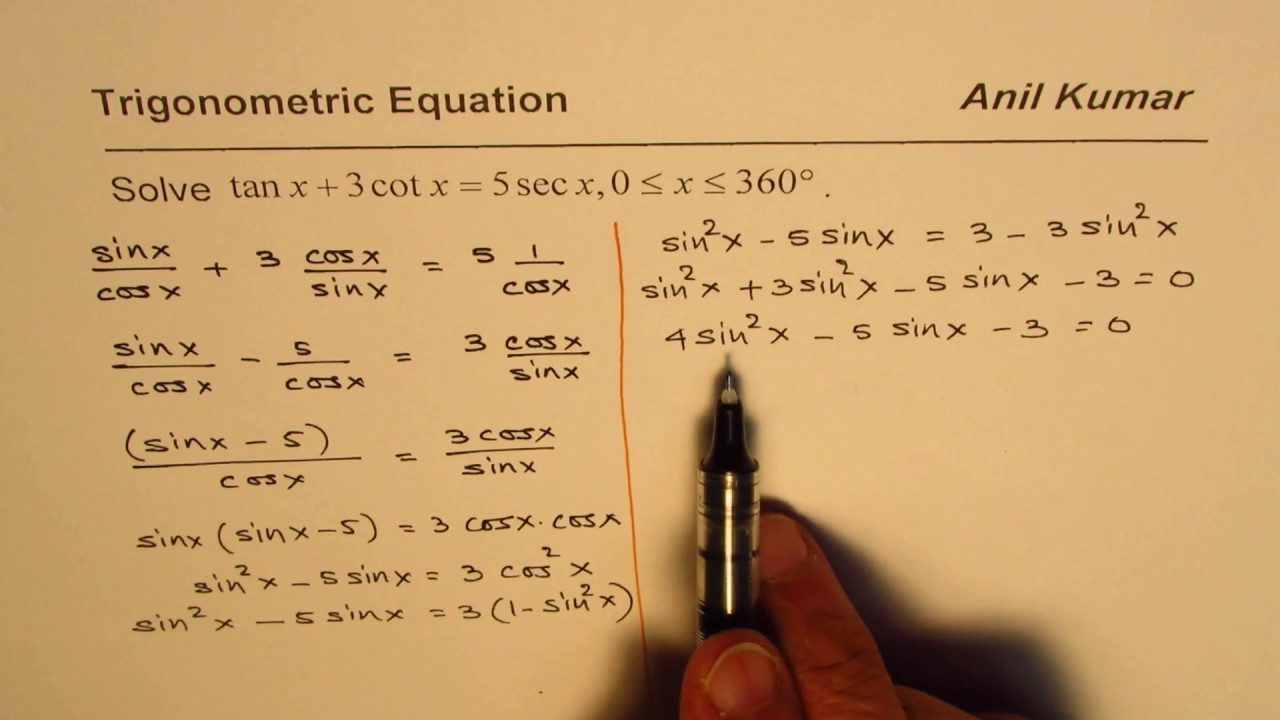 Trigonometric Equation Anil Kumar
Solve tan x + 3 cot x = 5 sec x, 0 ≤ x ≤ 360° .
sinx/cosx + 3 cosx/sinx = 5 1/cosx
sinx/cosx - 5/cosx = 3 cosx/sinx
(sinx - 5)/cosx = 3 cosx/sinx
sinx (sinx - 5) = 3 cosx · cosx
sin²x - 5 sinx = 3 cos²x
sin²x - 5 sinx = 3 (1 - sin²x)
sin²x - 5 sinx = 3 - 3 sin²x
sin²x + 3 sin²x - 5 sinx - 3 = 0
4 sin²x - 5 sinx - 3 = 0